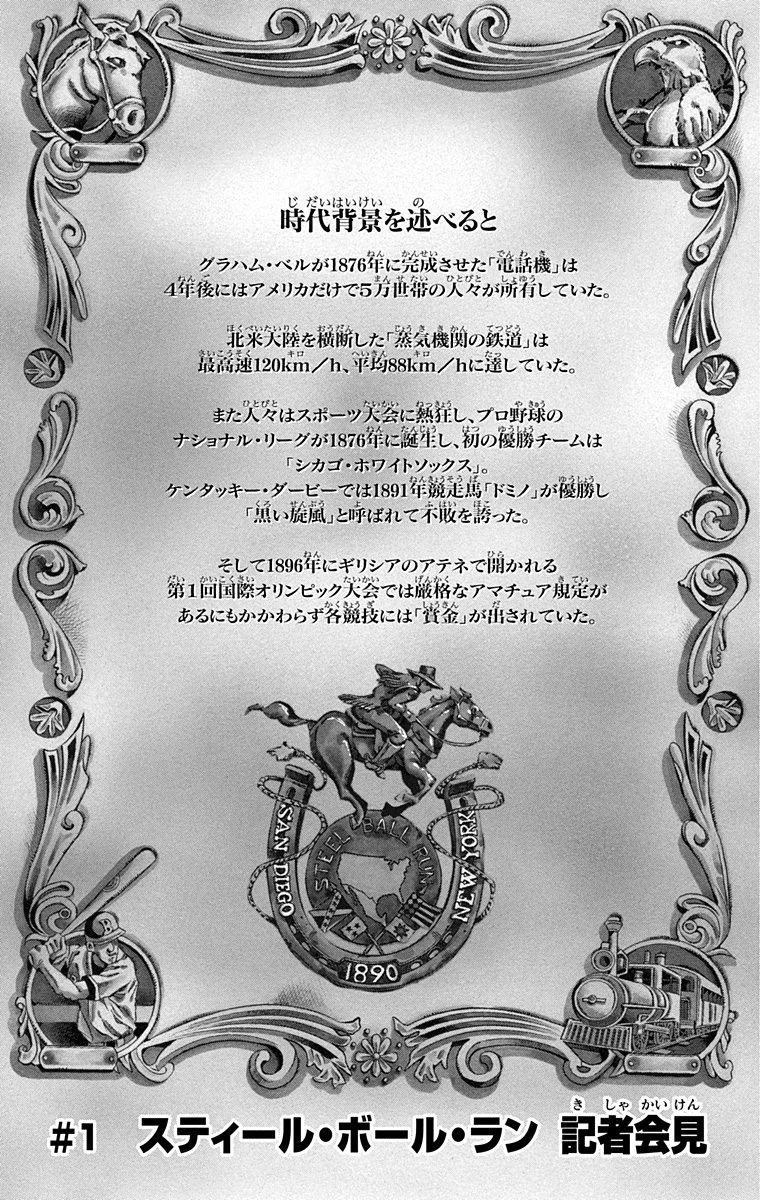 時代背景を述べると
グラハム・ベルが1876年に完成させた「電話機」は
4年後にはアメリカだけで5万世帯の人々が所有していた。
北米大陸を横断した「蒸気機関の鉄道」は
最高速120km/h、平均88km/hに達していた。
また人々はスポーツ大会に熱狂し、プロ野球の
ナショナル・リーグが1876年に誕生し、初の優勝チームは
「シカゴ・ホワイトソックス」。
ケンタッキー・ダービーでは1891年競走馬「ドミノ」が優勝し
「黒い旋風」と呼ばれて不敗を誇った。
そして1896年にギリシアのアテネで開かれる
第1回国際オリンピック大会では厳格なアマチュア規定が
あるにもかかわらず各競技には「賞金」が出されていた。
STEEL BALL RUN
SAN DIEGO
NEW YORK
1890
B
#1 スティール・ボール・ラン 記者会見